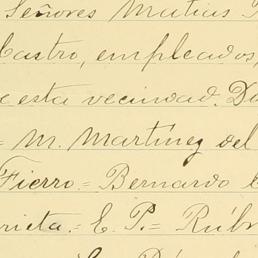 Señores Matias
Castro, empleados,
esta vecindad. Do
= M. Martínez del
Fierro.= Bernardo
rieta.= E. P.= Rúbr